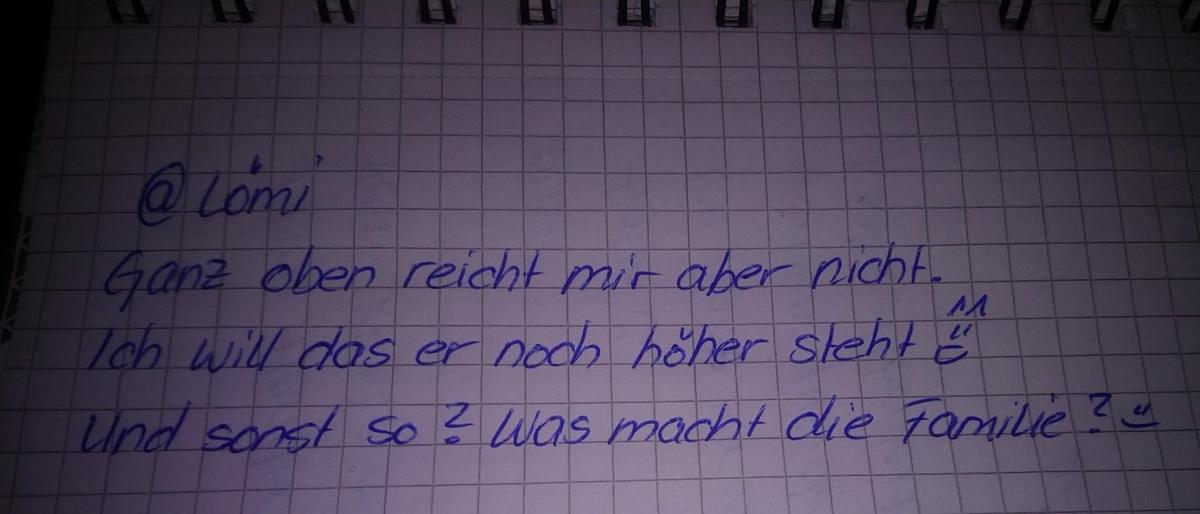 @ Lömi
Ganz oben reicht mir aber nicht.
Ich will das er noch höher steht
Und sonst so? Was macht die Familie?